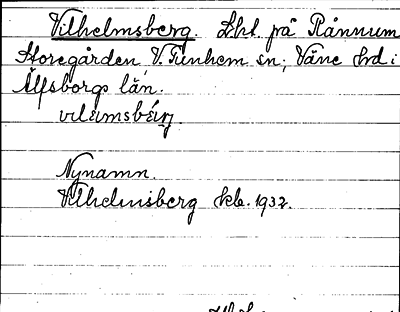 Vilhelmsberg. Lht. på Rånnum
Storegården, V. Tunhem sn; Väne hd i
Älfsborgs län.
vɩlɛmsbérj.
Nynamn.
Vilhelmsberg kb. 1932.